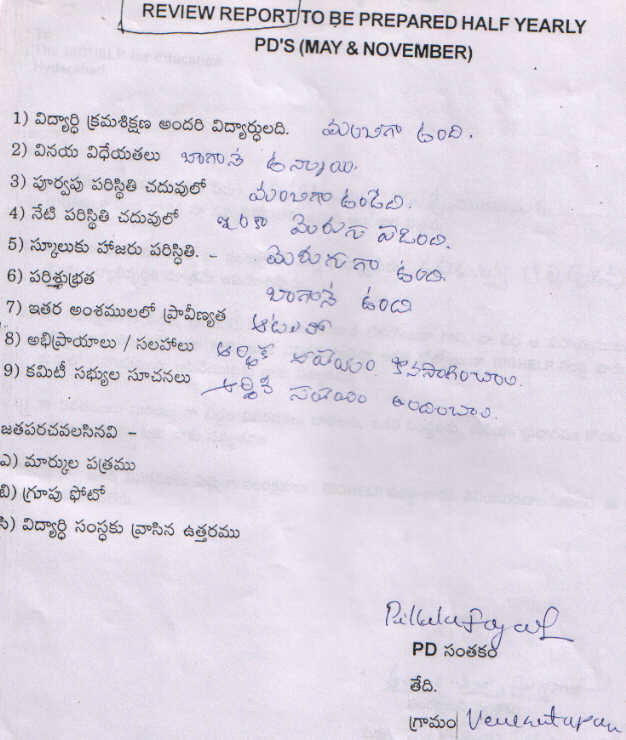 REVIEW REPORT TO BE PREPARED HALF YEARLY
PD'S (MAY & NOVEMBER)
1) విద్యార్ధి క్రమశిక్షణ అందరి విద్యార్ధులది. మంచిగా ఉంది.
2) వినయ విధేయతలు బాగానే ఉన్నాయి.
3) పూర్వపు పరిస్థితి చదువులో మంచిగా ఉండేది.
4) నేటి పరిస్థితి చదువులో ఇంకా మెరుగు పడింది.
5) స్కూలుకు హాజరు పరిస్థితి. - మెరుగుగా ఉంది.
6) పరిశుభ్రత బాగానే ఉంది
7) ఇతర అంశములలో ప్రావీణ్యత ఆటలలో
8) అభిప్రాయాలు / సలహాలు ఆర్థిక సహాయం కొనసాగించాలి.
9) కమిటీ సభ్యుల సూచనలు ఆర్థిక సహాయం అందించాలి.
జతపరచవలసినవి -
ఎ) మార్కుల పత్రము
బి) గ్రూపు ఫోటో
సి) విద్యార్ధి సంస్థకు వ్రాసిన ఉత్తరము
PD సంతకం
తేది.
గ్రామం